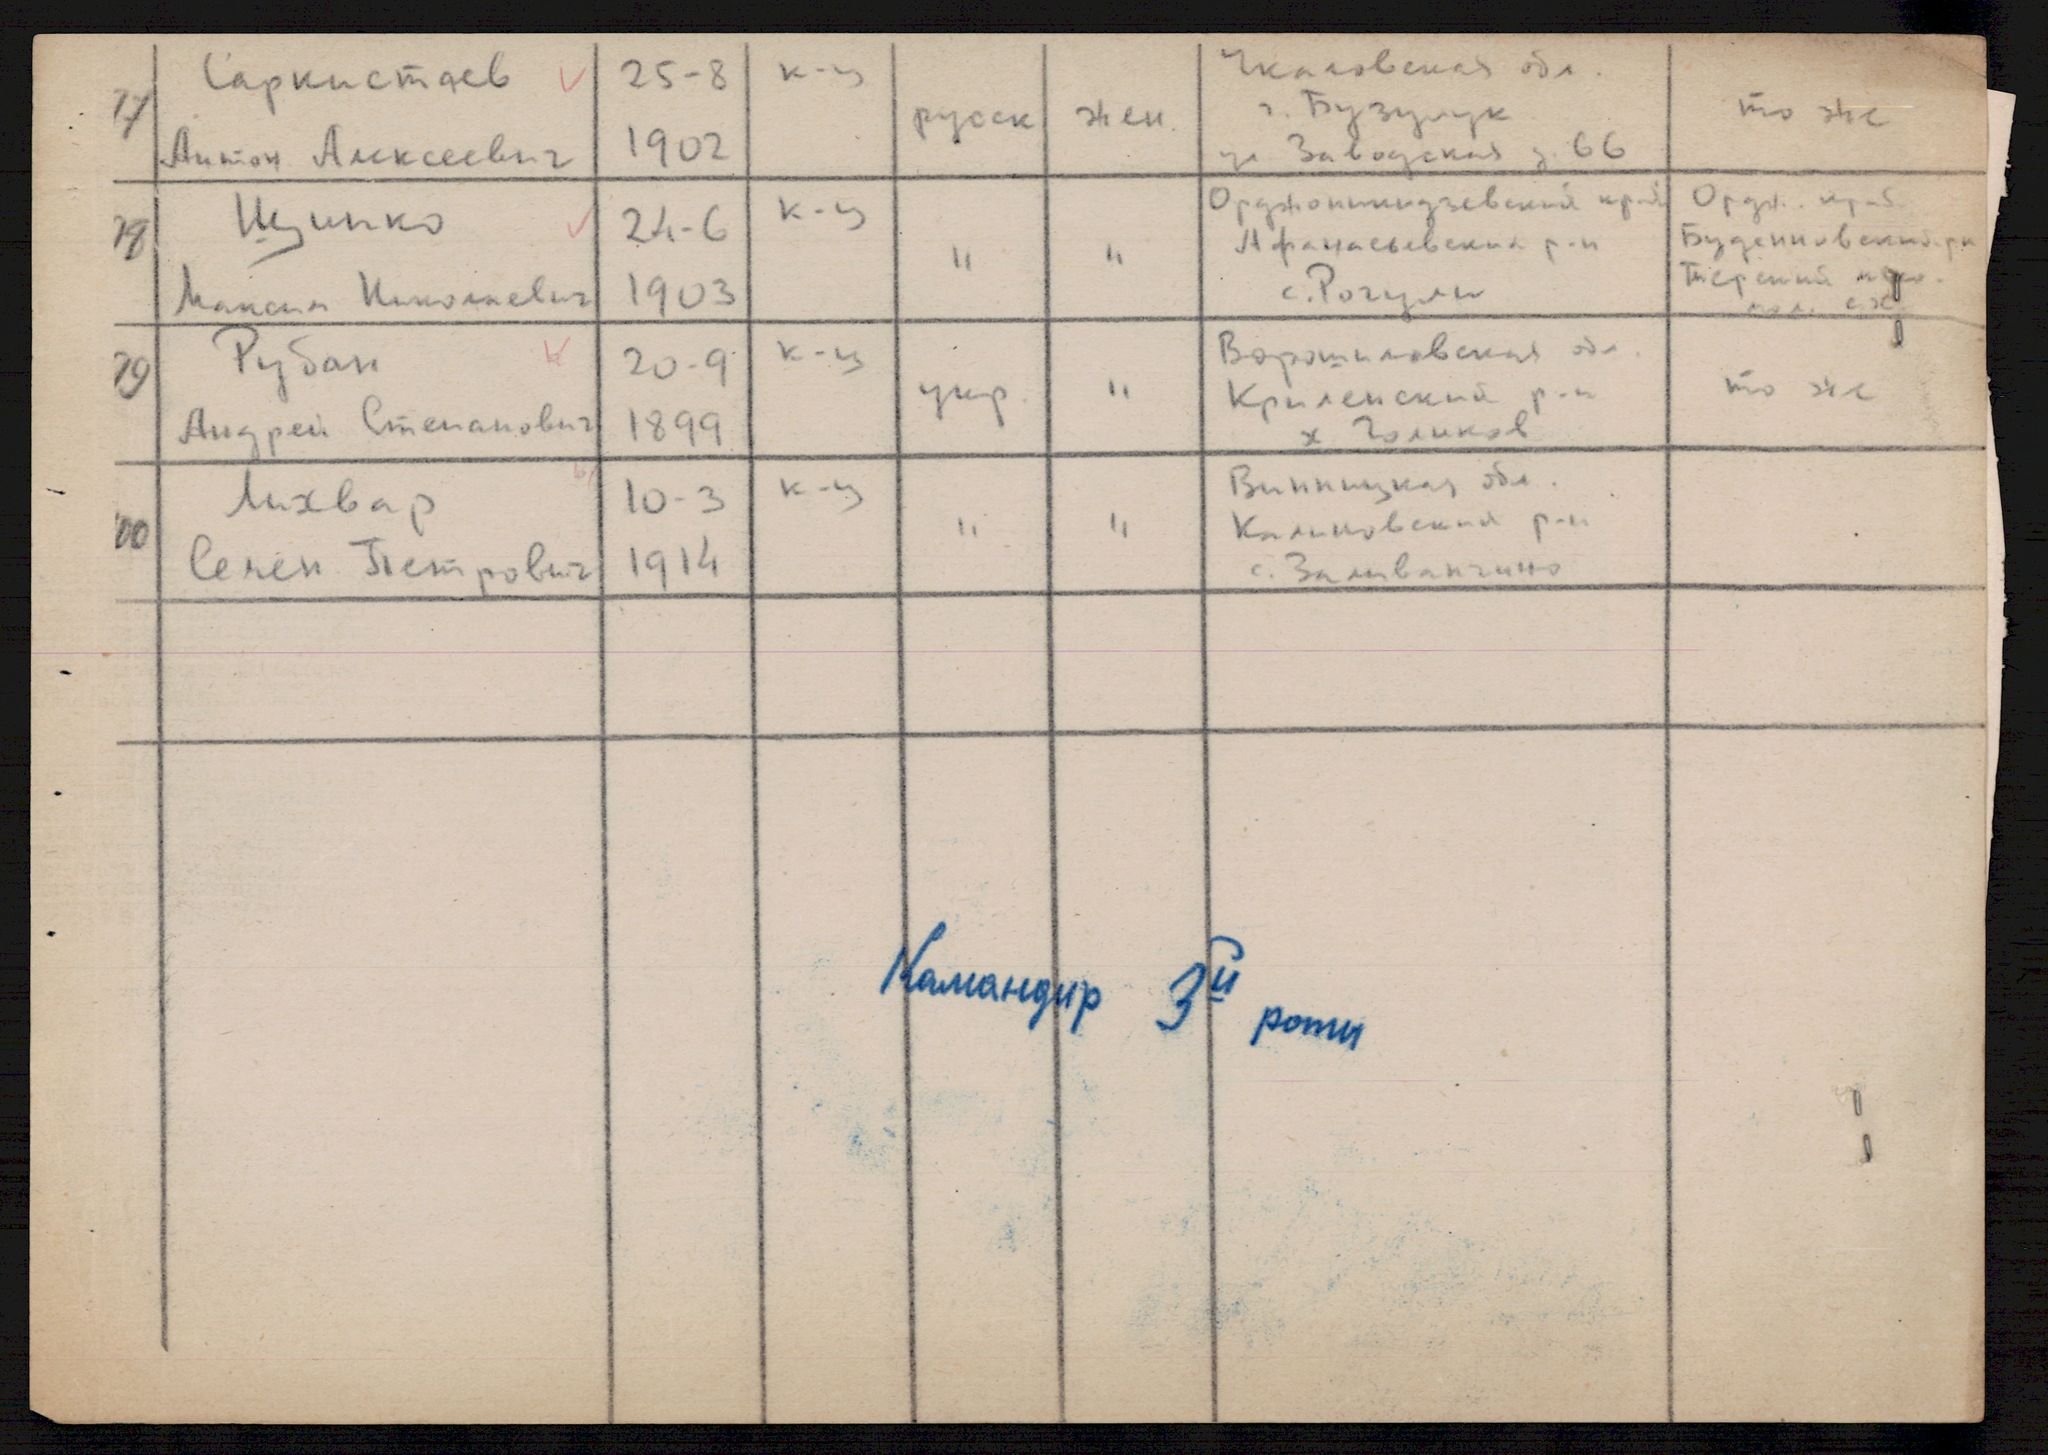 Саркистаев 25-8 к-ц Чкаловская обл.
77 русск жен. г. Бузулук то же
Антон Алексеевич 1902 ул Заводская д. 66
Щипко 24-6 к-ц Орджоникидзевский край Ордж. край
78 " " Афанасьевский р-н Буденновский р-н
Максим Николаевич 1903 с. Рогули Терский
Рубан 20-9 к-ц Ворошиловская обл.
79 укр. " Криленский р-н то же
Андрей Степанович 1899 х Голиков
Лихвар 10-3 к-ц Винницкая обл.
00 " " Калиновский р-н
Семен Петрович 1914 с. Заливанчино
Камандир 3й роты